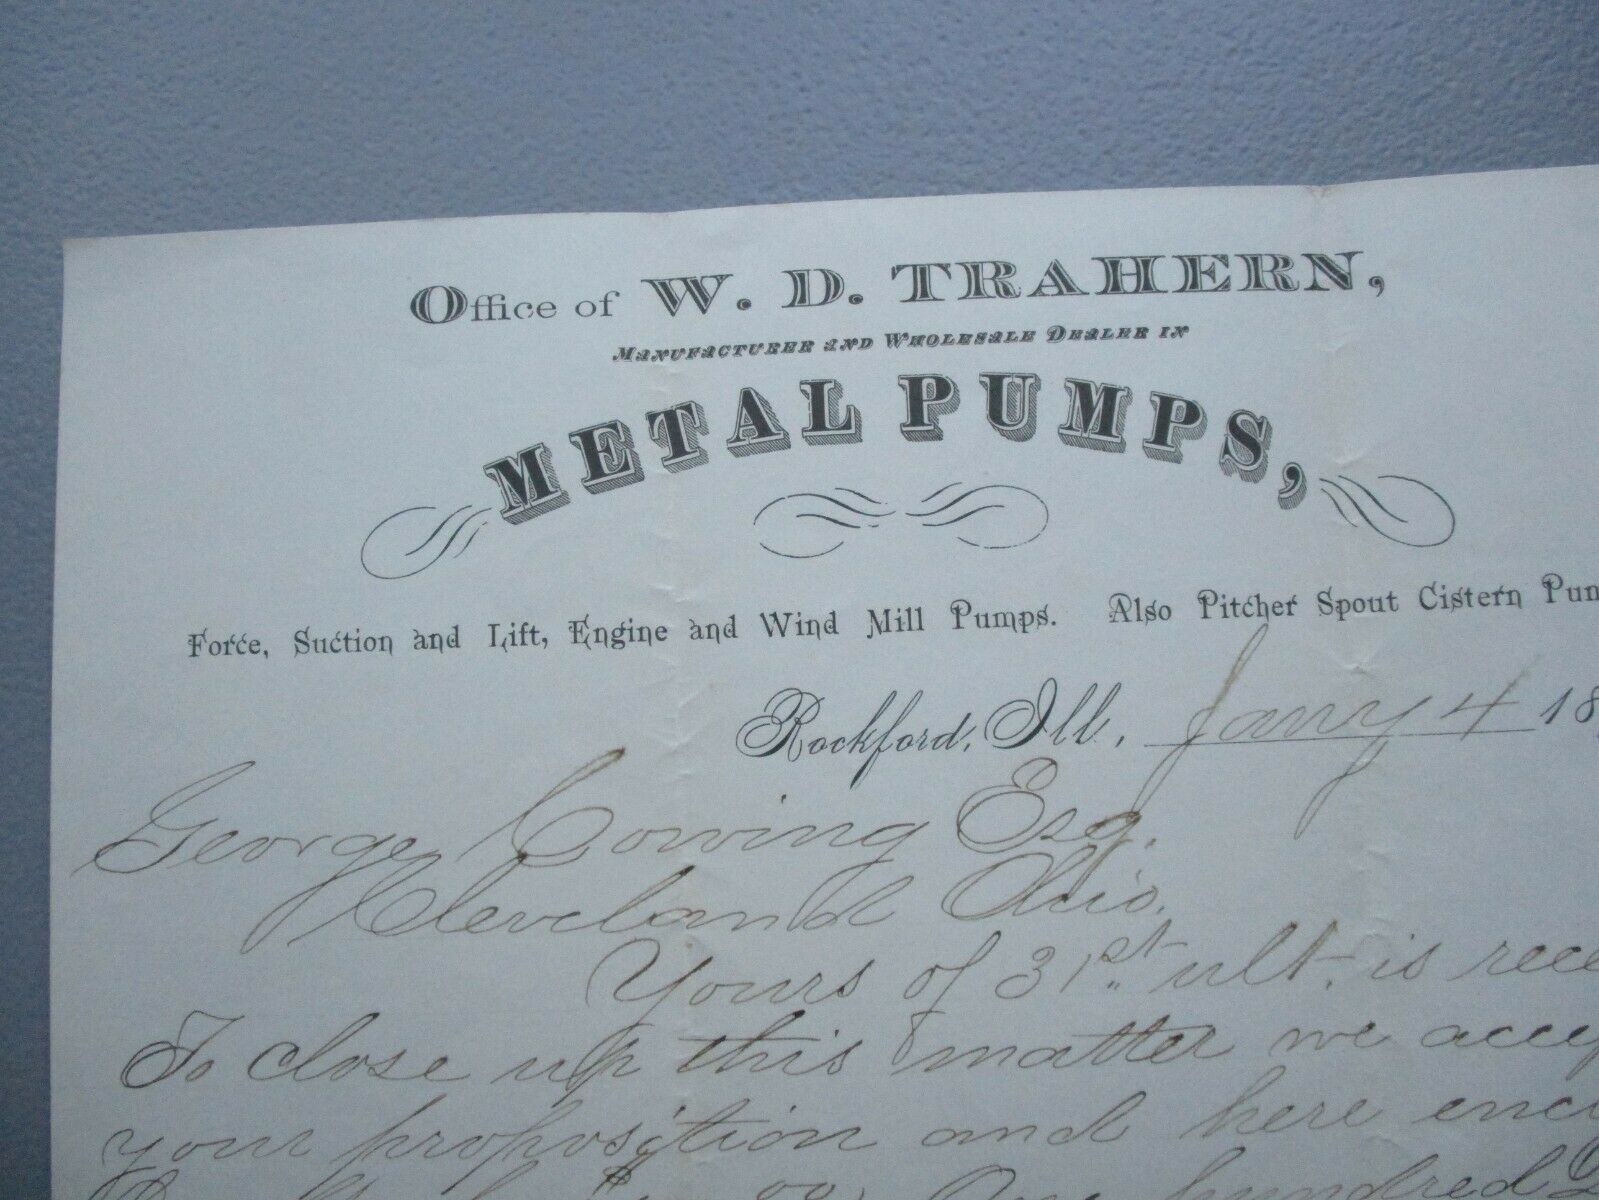 Office of W. D. TRAHERN,
MANUFACTURER AND WHOLESALE DEALER IN
METAL PUMPS,
Force, Suction and Lift, Engine and Wind Mill Pumps. Also Pitcher Spout Cistern Pum
Rockford, Ill., Jany 4 18
George Cowing Esq.
Cleveland Ohio.
Yours of 31st ult. is rece
To close up this matter we accep
your proposition and here enc
One hundred